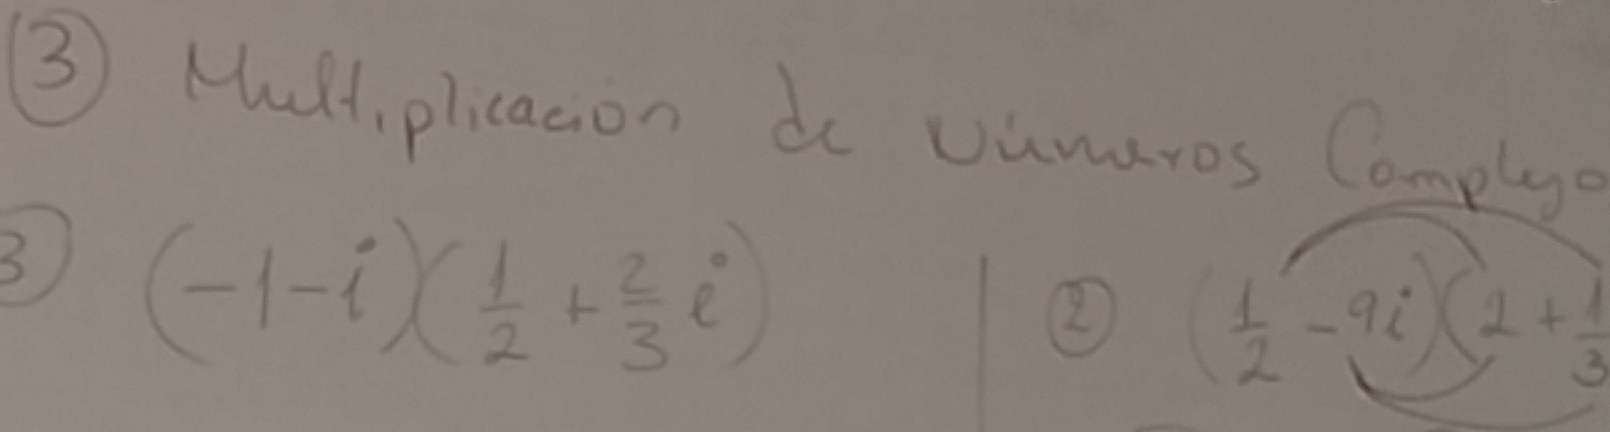 ③ Multiplicacion de Números Complejo
③ (-1-i)(1/2 + 2/3 i) | ② (1/2 - 9i)(2 + 1/3